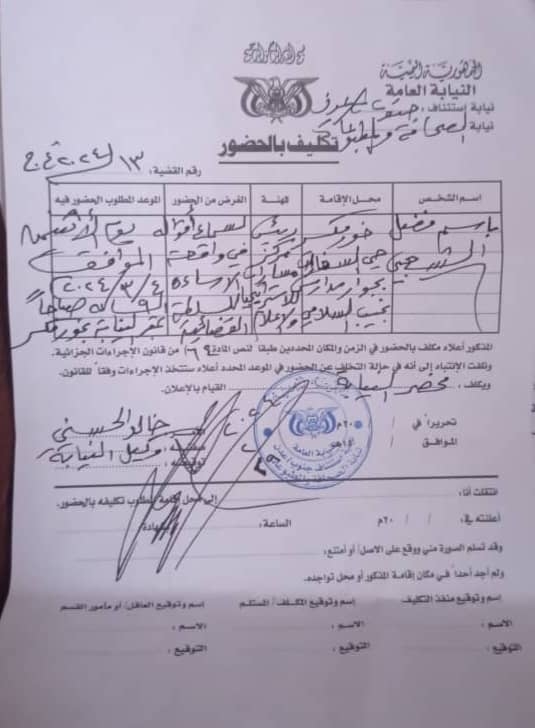 الجمهورية اليمنية
النيابة العامة
نيابة إستئناف: جنوب عدن
نيابة الصحافة والمطبوعات
تكليف بالحضور
رقم القضية: ١٣ / ٢٠٢٤ ج ع
اسم الشخص محل الإقامة المهنة الغرض من الحضور الموعد المطلوب الحضور فيه
باسم فضل خور مكسر رئيس لسماع أقواله يوم الاثنين
الشعبي حي السفارات مركز في واقعة الموافق
بجوار مدارس مسارات الإساءة ٤/٣/٢٠٢٤
نجيب السلامي للاستراتيجيا والإعلام للسلطة القضائية ٩ صباحاً
بمقر النيابة بخور مكسر
المذكور أعلاه مكلف بالحضور في الزمن والمكان المحددين طبقا لنص المادة (٦٩) من قانون الإجراءات الجزائية.
ونلفت الإنتباه إلى أنه في حالة التخلف عن الحضور في الموعد المحدد أعلاه ستتخذ الإجراءات وفقاً للقانون.
ويكلف: محضر النيابة القيام بالإعلان.
تحريراً في / / ٢٠م
الموافق / / ١٤هـ
خالد الحسني
وكيل النيابة
النيابة العامة
نيابة استئناف جنوب عدن
نيابة الصحافة والمطبوعات
انتقلت أنا: إلى محل إقامة المطلوب تكليفه بالحضور.
أعلنته في: / / ٢٠م الساعة:
وقد تسلم الصورة مني ووقع على الاصل/ أو أمتنع.
ولم أجد أحداً في مكان إقامة المذكور أو محل تواجده.
إسم وتوقيع منفذ التكليف إسم وتوقيع المكلف/ المستلم إسم وتوقيع العاقل/ أو مأمور القسم
الاسم: الاسم: الاسم:
التوقيع: التوقيع: التوقيع: